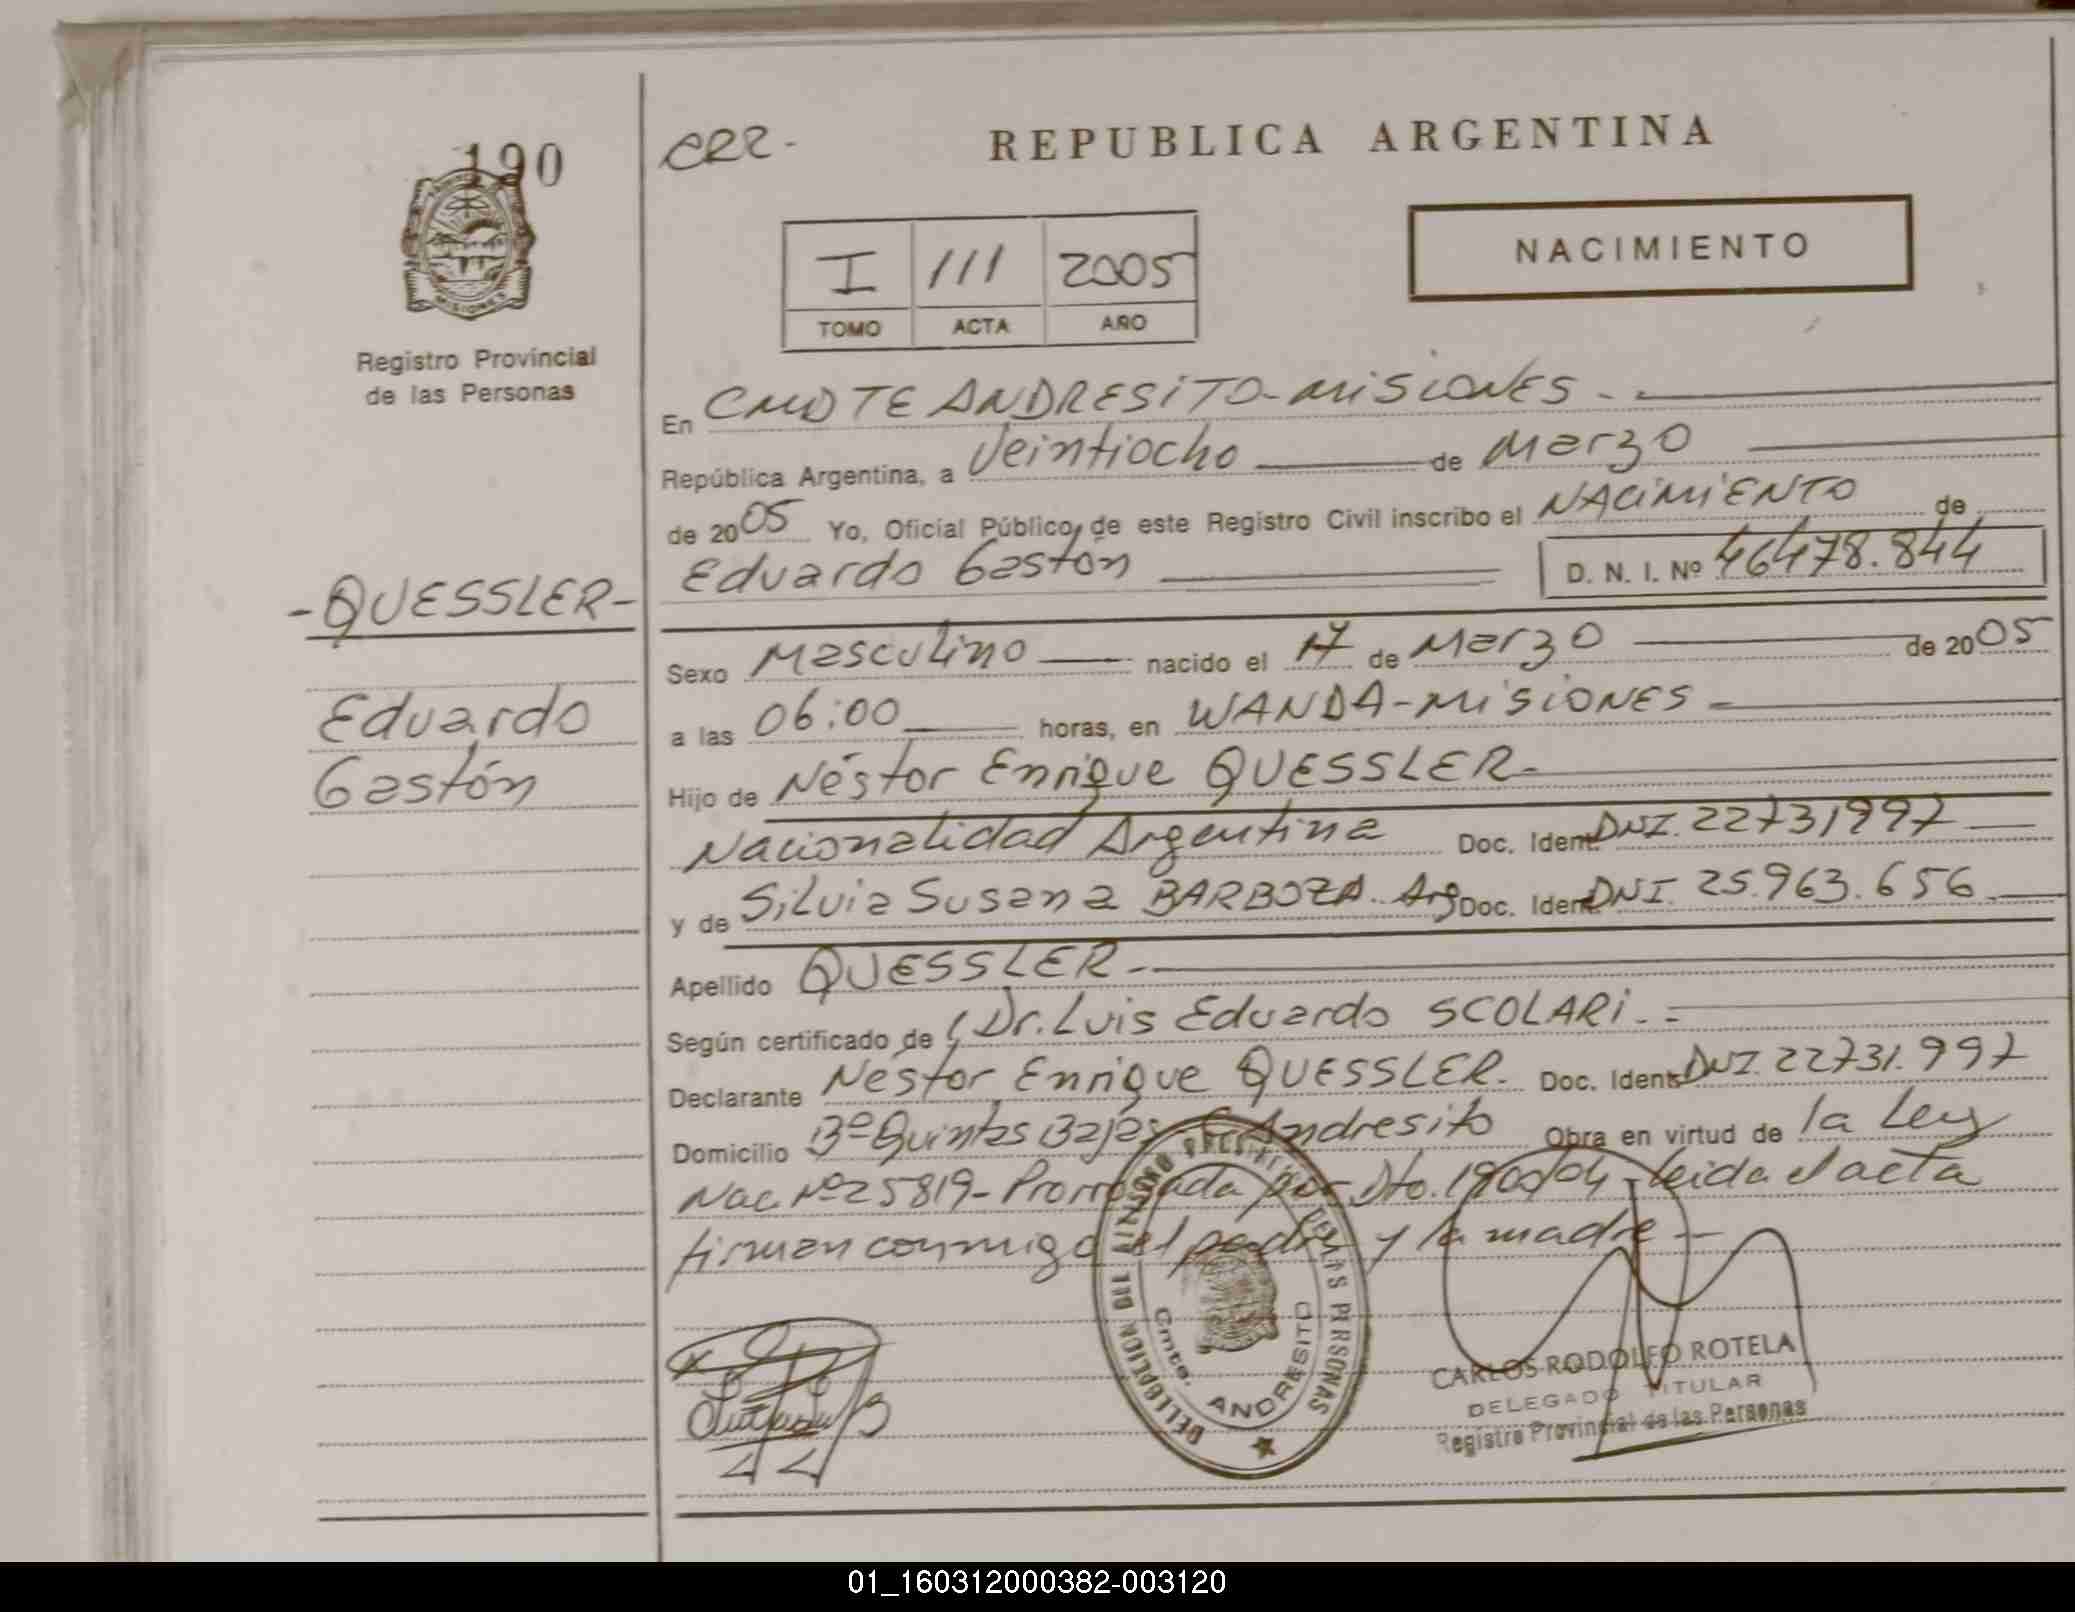 190
CRR-
REPUBLICA ARGENTINA
I 111 2005
TOMO ACTA AÑO
NACIMIENTO
MISIONES
Registro Provincial
de las Personas
En CMDTE ANDRESITO-MISIONES.-
República Argentina, a Veintiocho de Marzo
de 2005 Yo, Oficial Público, de este Registro Civil inscribo el NACIMIENTO de
Eduardo Gastón D. N. I. Nº 46478.844
-QUESSLER-
Eduardo
Gastón
Sexo Masculino nacido el 17 de Marzo de 2005
a las 06:00 horas, en WANDA-MISIONES
Hijo de Néstor Enrique QUESSLER-
Nacionalidad Argentina Doc. Ident. DNI. 22731997
y de Silvia Susana BARBOZA. Arg Doc. Ident. DNI. 25.963.656
Apellido QUESSLER-
Según certificado de Dr. Luis Eduardo SCOLARI.-
Declarante Néstor Enrique QUESSLER. Doc. Ident. DNI. 22731.997
Domicilio Bº Quintas Bajas Andresito Obra en virtud de la Ley
Nac Nº 25819- Prorrogada por Dto. 1900/04 - Leida el acta
firman conmigo el padre y la madre-
DELEGACION DEL REGISTRO PROVINCIAL DE LAS PERSONAS
Cmte. ANDRESITO
CARLOS RODOLFO ROTELA
DELEGADO TITULAR
Registro Provincial de las Personas
01_160312000382-003120